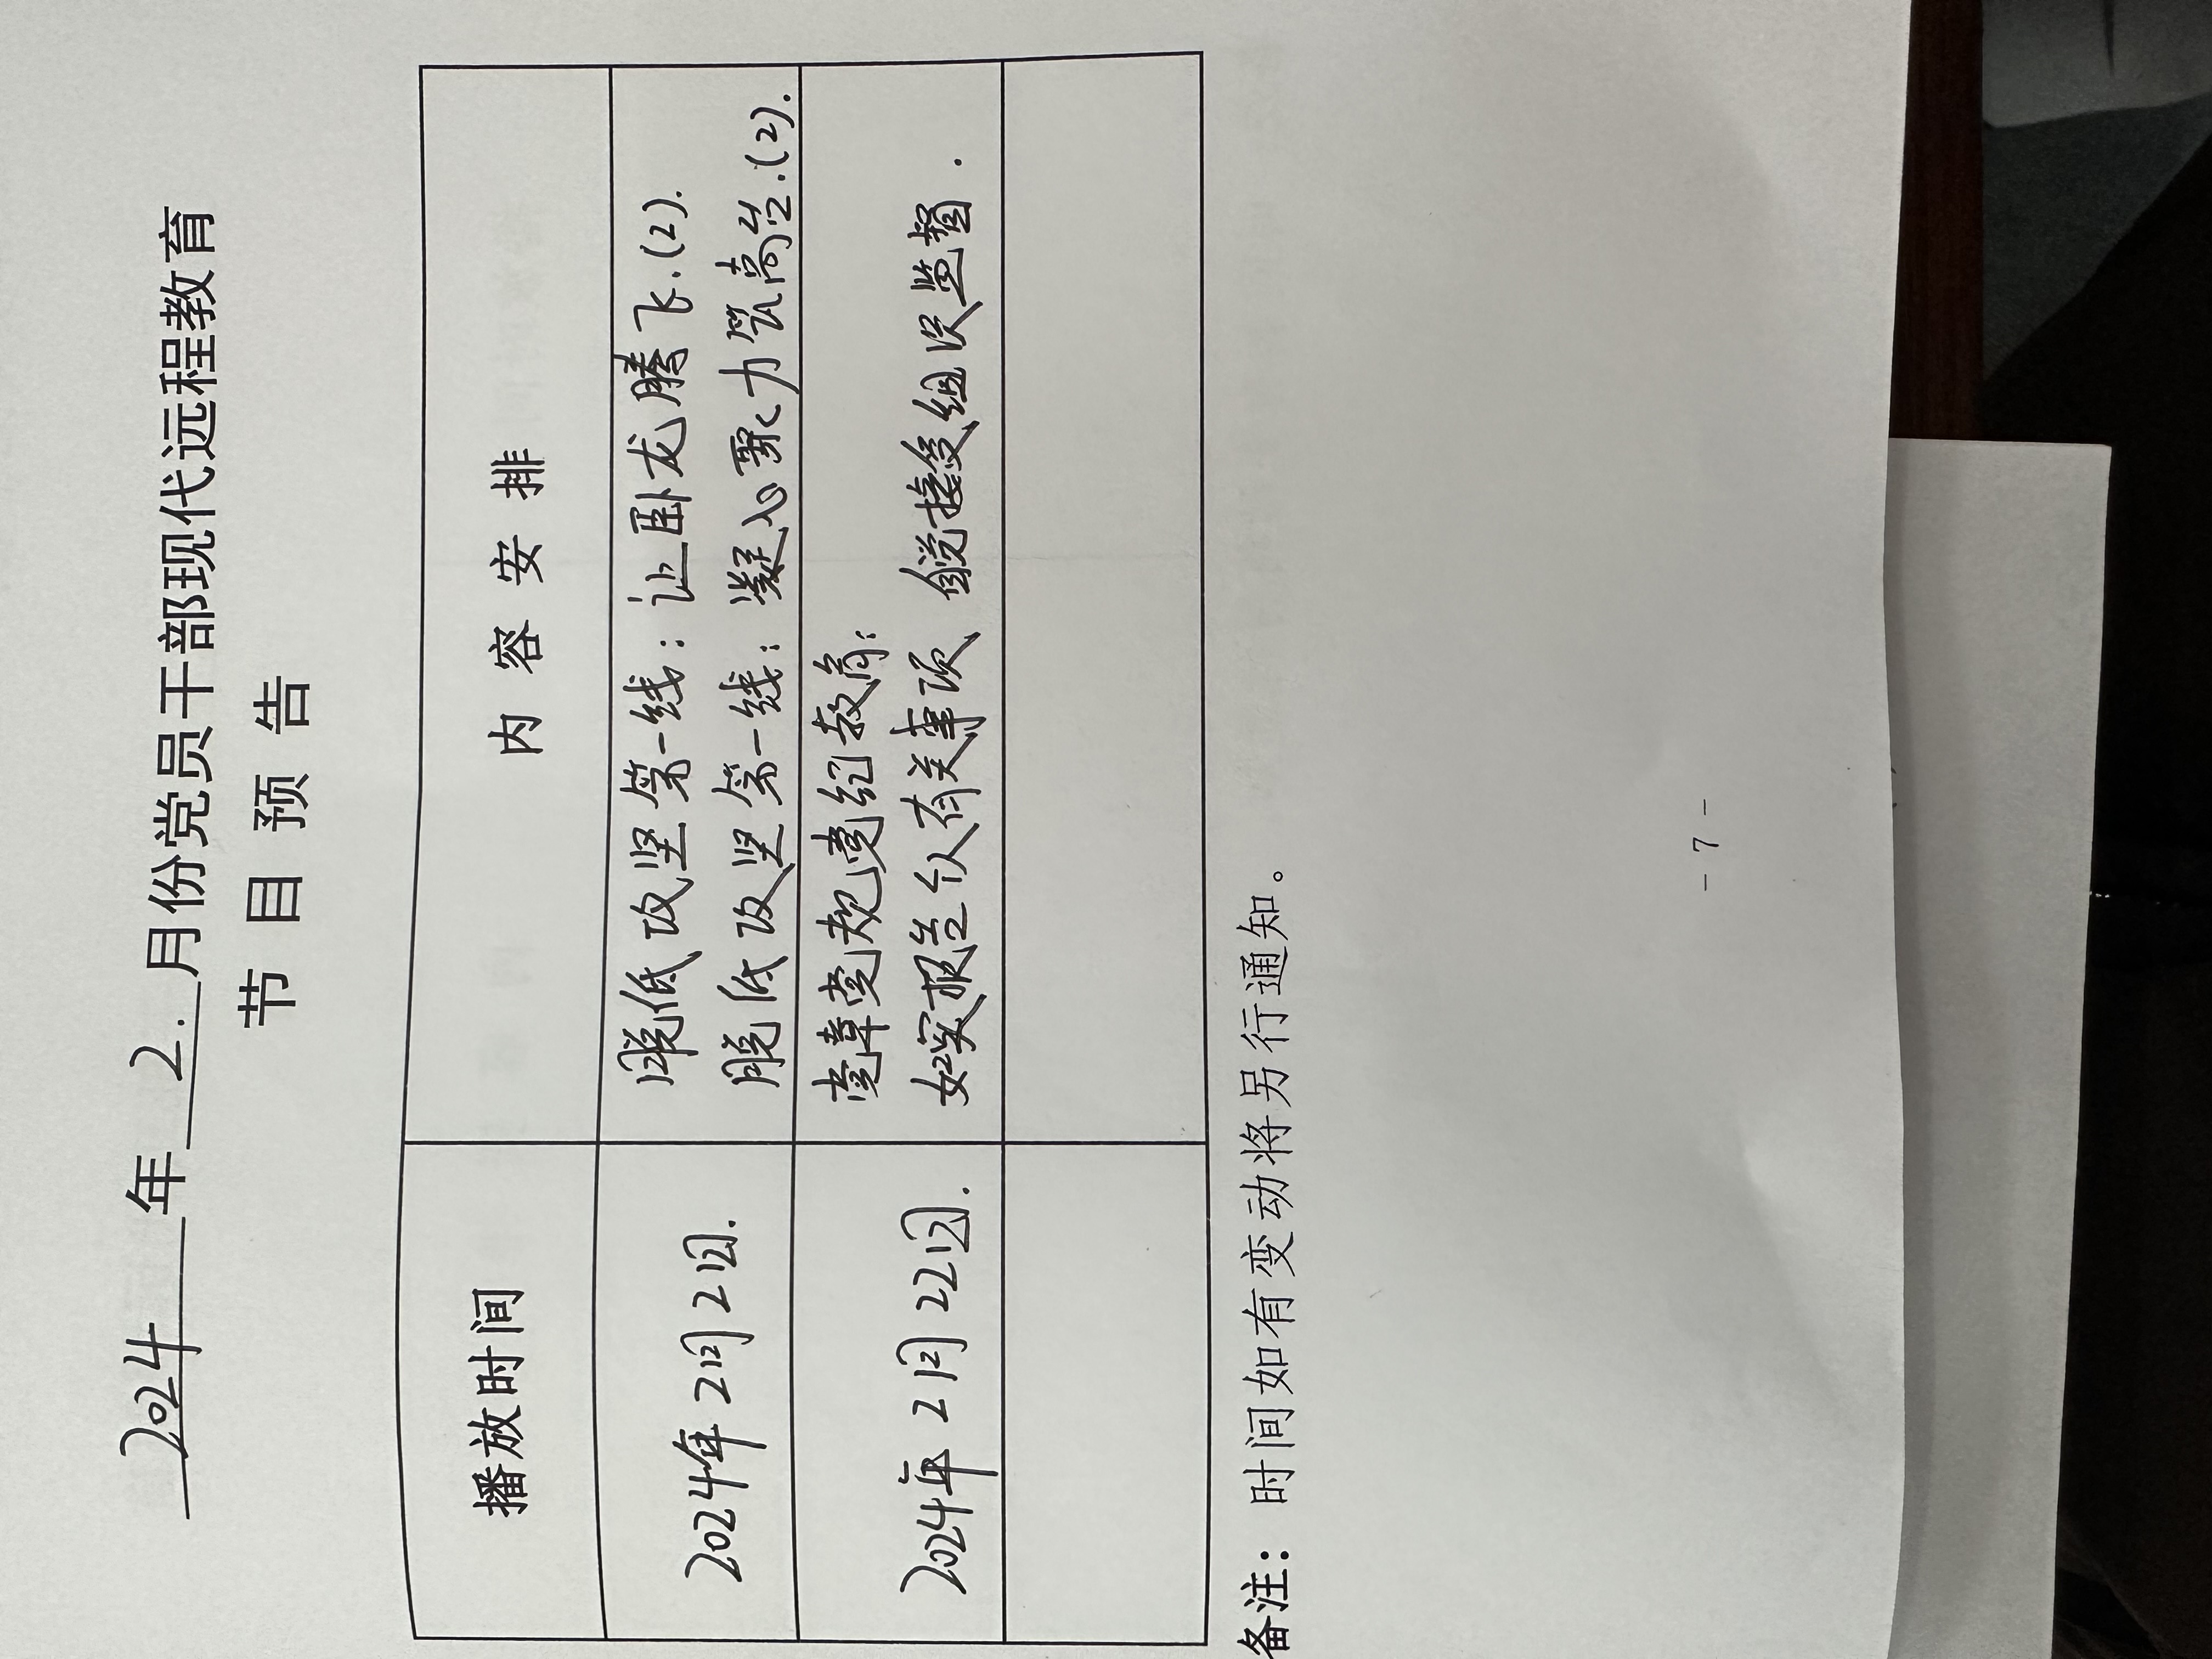 2024年2.月份党员干部现代远程教育
节目预告
播放时间 内容安排
2024年2月2日. 脱低攻坚第一线：让卧龙腾飞.(2).
脱低攻坚第一线：凝心聚力筑高台.(2).
2024年2月22日. 党章党规党纪教育：
如实报告个人有关事项 自觉接受组织监督.
备注：时间如有变动将另行通知。
- 7 -